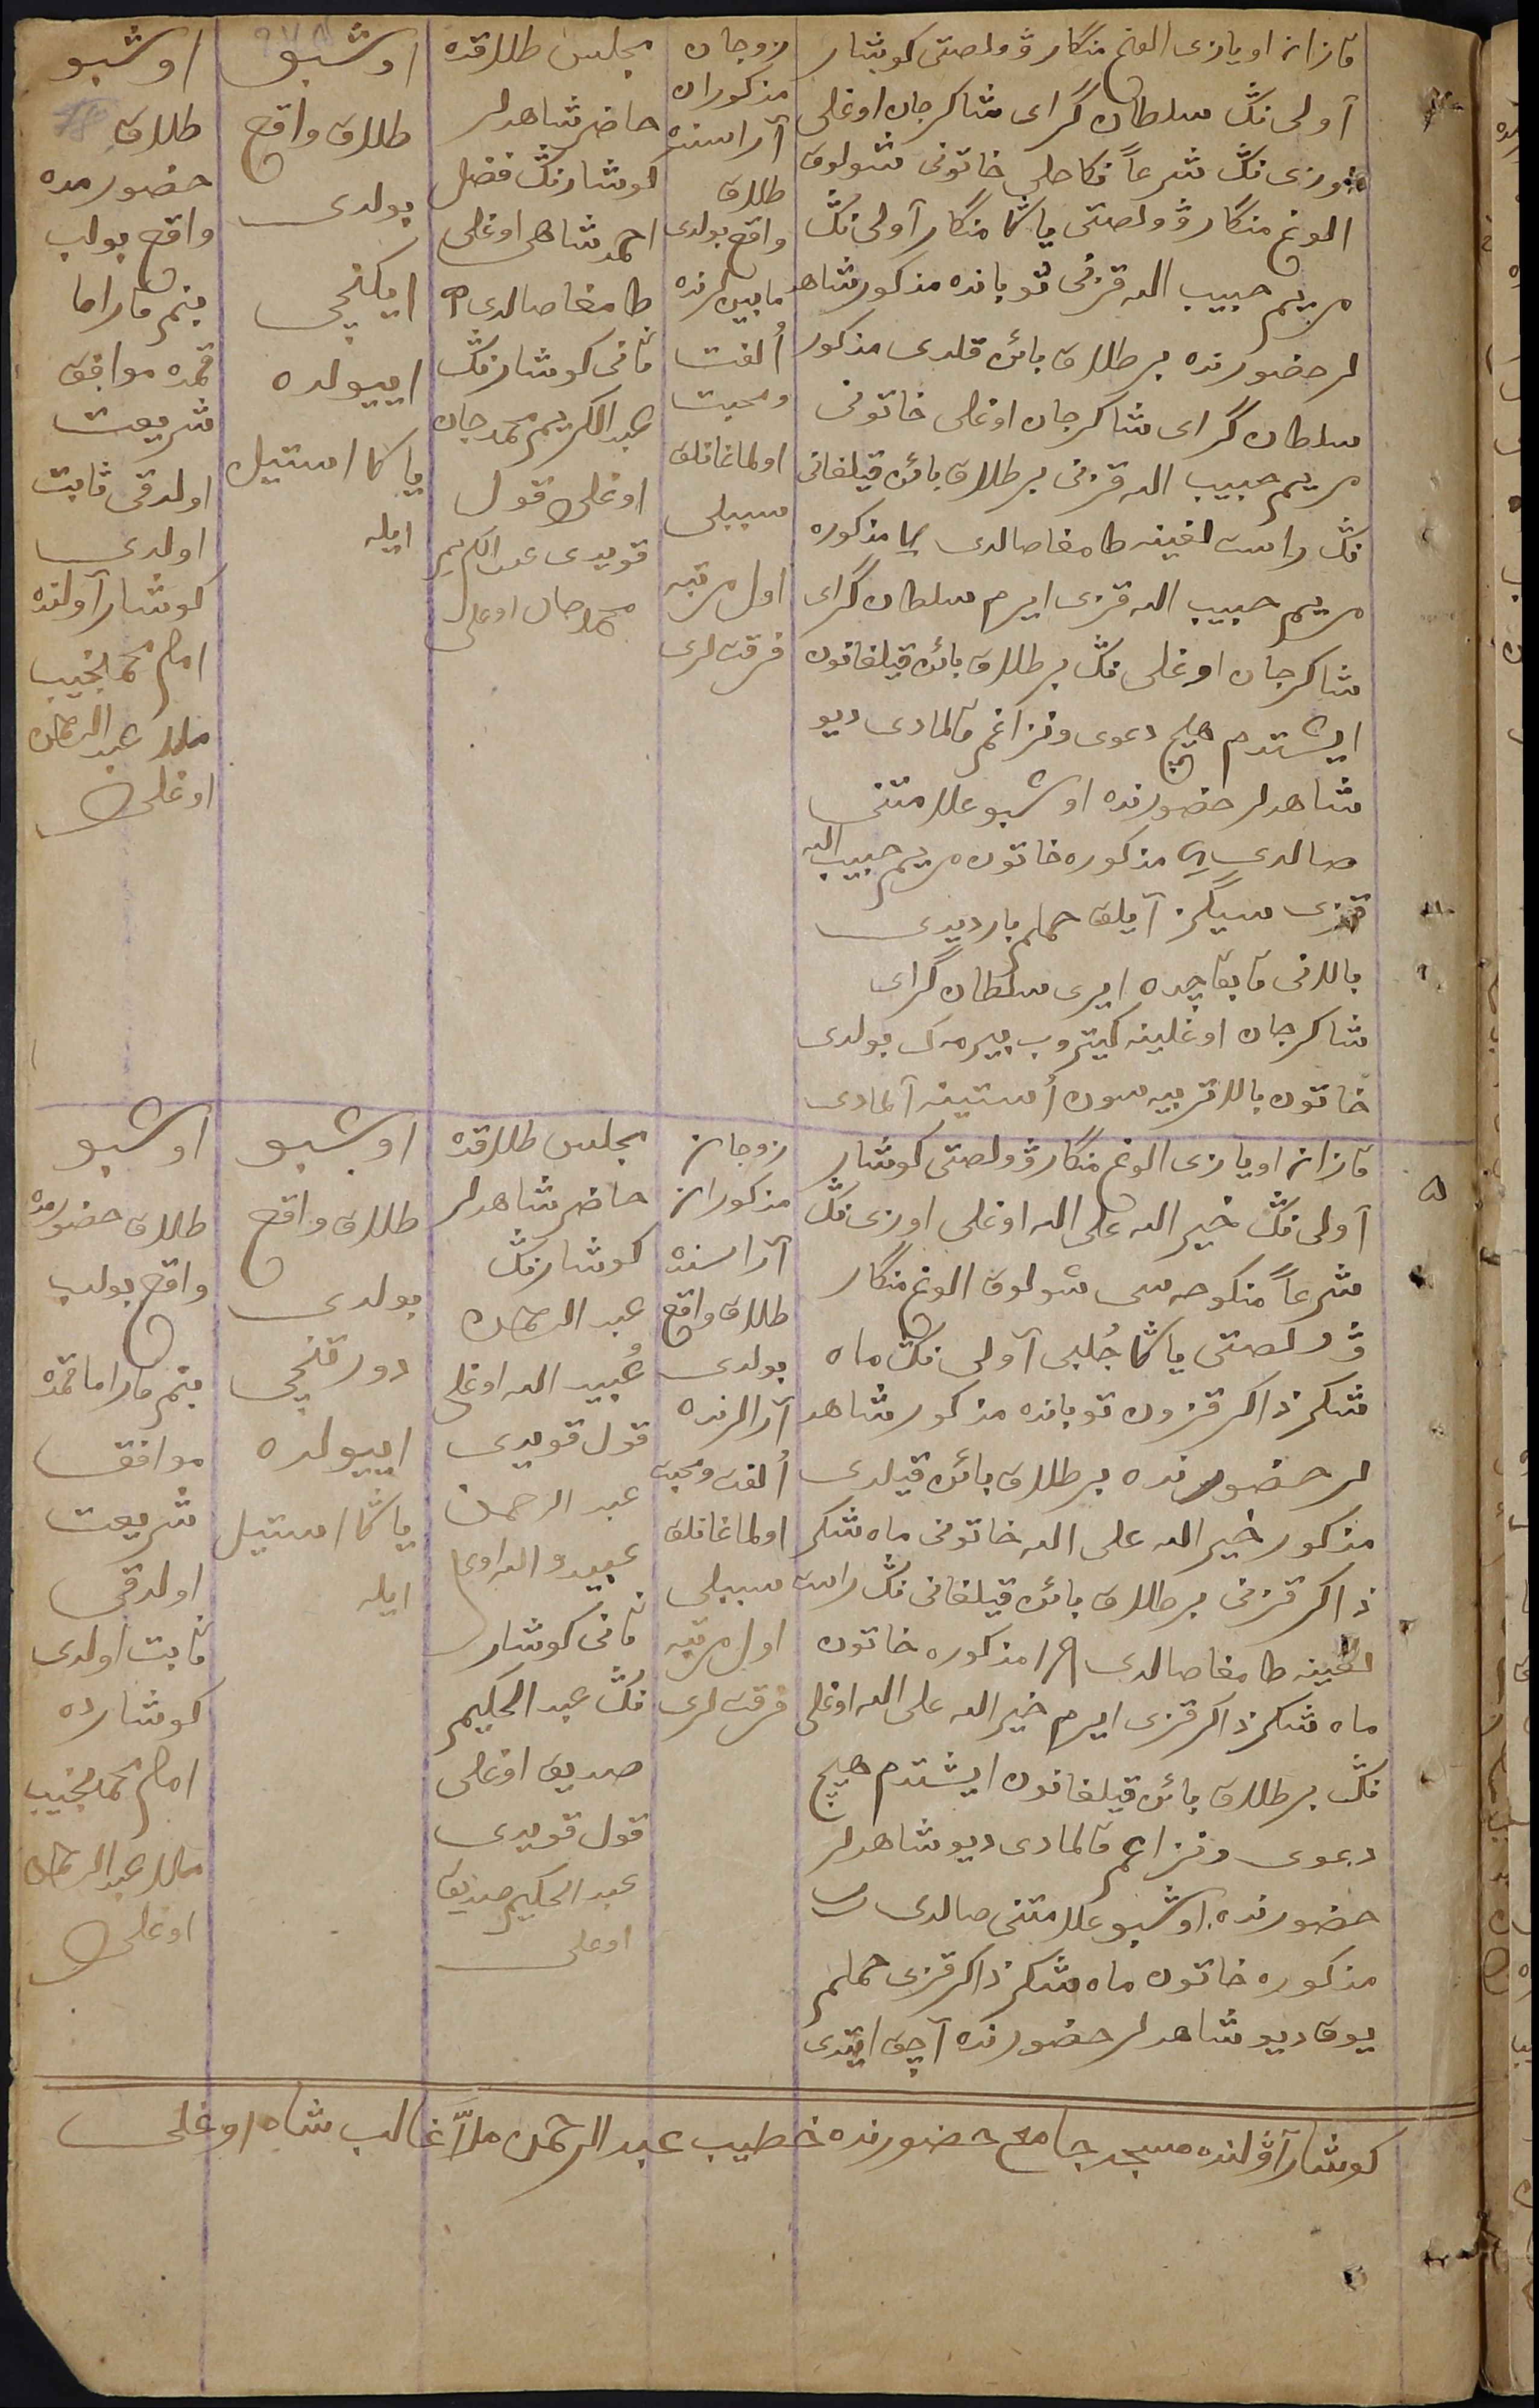 قازان اويازى الوغ منگار ۋولصتى كوشار
آولى نڭ سلطان گراى شاكرجان اوغلى
اوزى نڭ شرعاً نكاحلى خاتونى شولوق
الوغ منگار ۋولصتى ياڭا منگار آولى نڭ
مريم حبيب الله قزنى توبانده مذكور شاهد
لر حضورنده بر طلاق بائن قلدى مذكور
سلطان گراى شاكرجان اوغلى خاتونى
مريم حبيب الله قزنى بر طلاق بائن قيلغانى
نڭ راست لغينه طامغا صالدى مذكوره
مريم حبيب الله قزى ايرم سلطان گراى
شاكرجان اوغلى نڭ بر طلاق بائن قيلغانون
ايشتدم هيچ دعوى ونزاغم قالمادى ديو
شاهدلر حضورنده اوشبو علامتنى
صالدى مذكوره خاتون مريم حبيب الله
قزى سيگز آيلق حملم بار ديدى
بالانى تابقاچده ايرى سلطان گراى
شاكرجان اوغلينه كيتروب بيرمەك بولدى
خاتون بالا تربيه سون أستينه آلمادى
زوجان
مذكوران
آراسنده
طلاق
واقع بولدى
مابينلرنده
ألفت
ومحبت
اولماغانلق
سببلى
اول مرتبه
فرقتلرى
مجلس طلاقده
حاضر شاهدلر
كوشارنڭ فضل
احمدشاهى اوغلى
طامغا صالدى
ثانى كوشارنڭ
عبد الكريم محمدجان
اوغلى قول
قويدى عبد الكريم
محمدجان اوغلى
اوشبو
طلاق واقع
بولدى
ايكنچى
اييولده
ياڭا استيل
ايله
اوشبو
طلاق
حضورمده
واقع بولب
بنم قاراما
قمده موافق
شريعت
اولدقى ثابت
اولدى
كوشار آولنده
امام محمدنجيب
ملا عبد الرحمان
اوغلى
۵
قازان اويازى الوغ منگار ۋولصتى كوشار
آولى نڭ خير الله على الله اوغلى اوزى نڭ
شرعاً منكوحه سى شولوق الوغ منگار
ۋولصتى ياڭا جُلبى آولى نڭ ماه
شكر ذاكر قزون توبانده مذكور شاهد
لر حضورنده بر طلاق بائن قيلدى
مذكور خير الله على الله خاتونى ماه شكر
ذاكر قزنى بر طلاق بائن قيلغانى نڭ راست
لغينه طامغا صالدى مذكوره خاتون
ماه شكر ذاكر قزى ايرم خير الله على الله اوغلى
نڭ بر طلاق بائن قيلغانون ايشتدم هيچ
دعوى ونزاعم قالمادى ديو شاهدلر
حضورنده اوشبو علامتنى صالدى
مذكوره خاتون ماه شكر ذاكر قزى حملم
يوق ديو شاهدلر حضورنده آچق ايتدى
زوجان
مذكوران
آراسنده
طلاق واقع
بولدى
آرالرنده
ألفت ومحبت
اولماغانلق
سببلى
اول مرتبه
فرقتلرى
مجلس طلاقده
حاضر شاهدلر
كوشارنڭ
عبد الرحمان
عُبيد الله اوغلى
قول قويدى
عبد الرحمن
عبيد الله اوغلى
ثانى كوشار
نڭ عبد الحكيم
صديق اوغلى
قول قويدى
عبد الحكيم صديق
اوغلى
اوشبو
طلاق واقع
بولدى
دورتنچى
اييولده
ياڭا استيل
ايله
اوشبو
طلاق حضورمده
واقع بولب
بنم قاراماقمده
موافق
شريعت
اولدقى
ثابت اولدى
كوشارده
امام محمدنجيب
ملا عبد الرحمان
اوغلى
كوشار آۋلنده مسجد جامع حضورنده خطيب عبد الرحمن ملاّ غالب شاه اوغلى